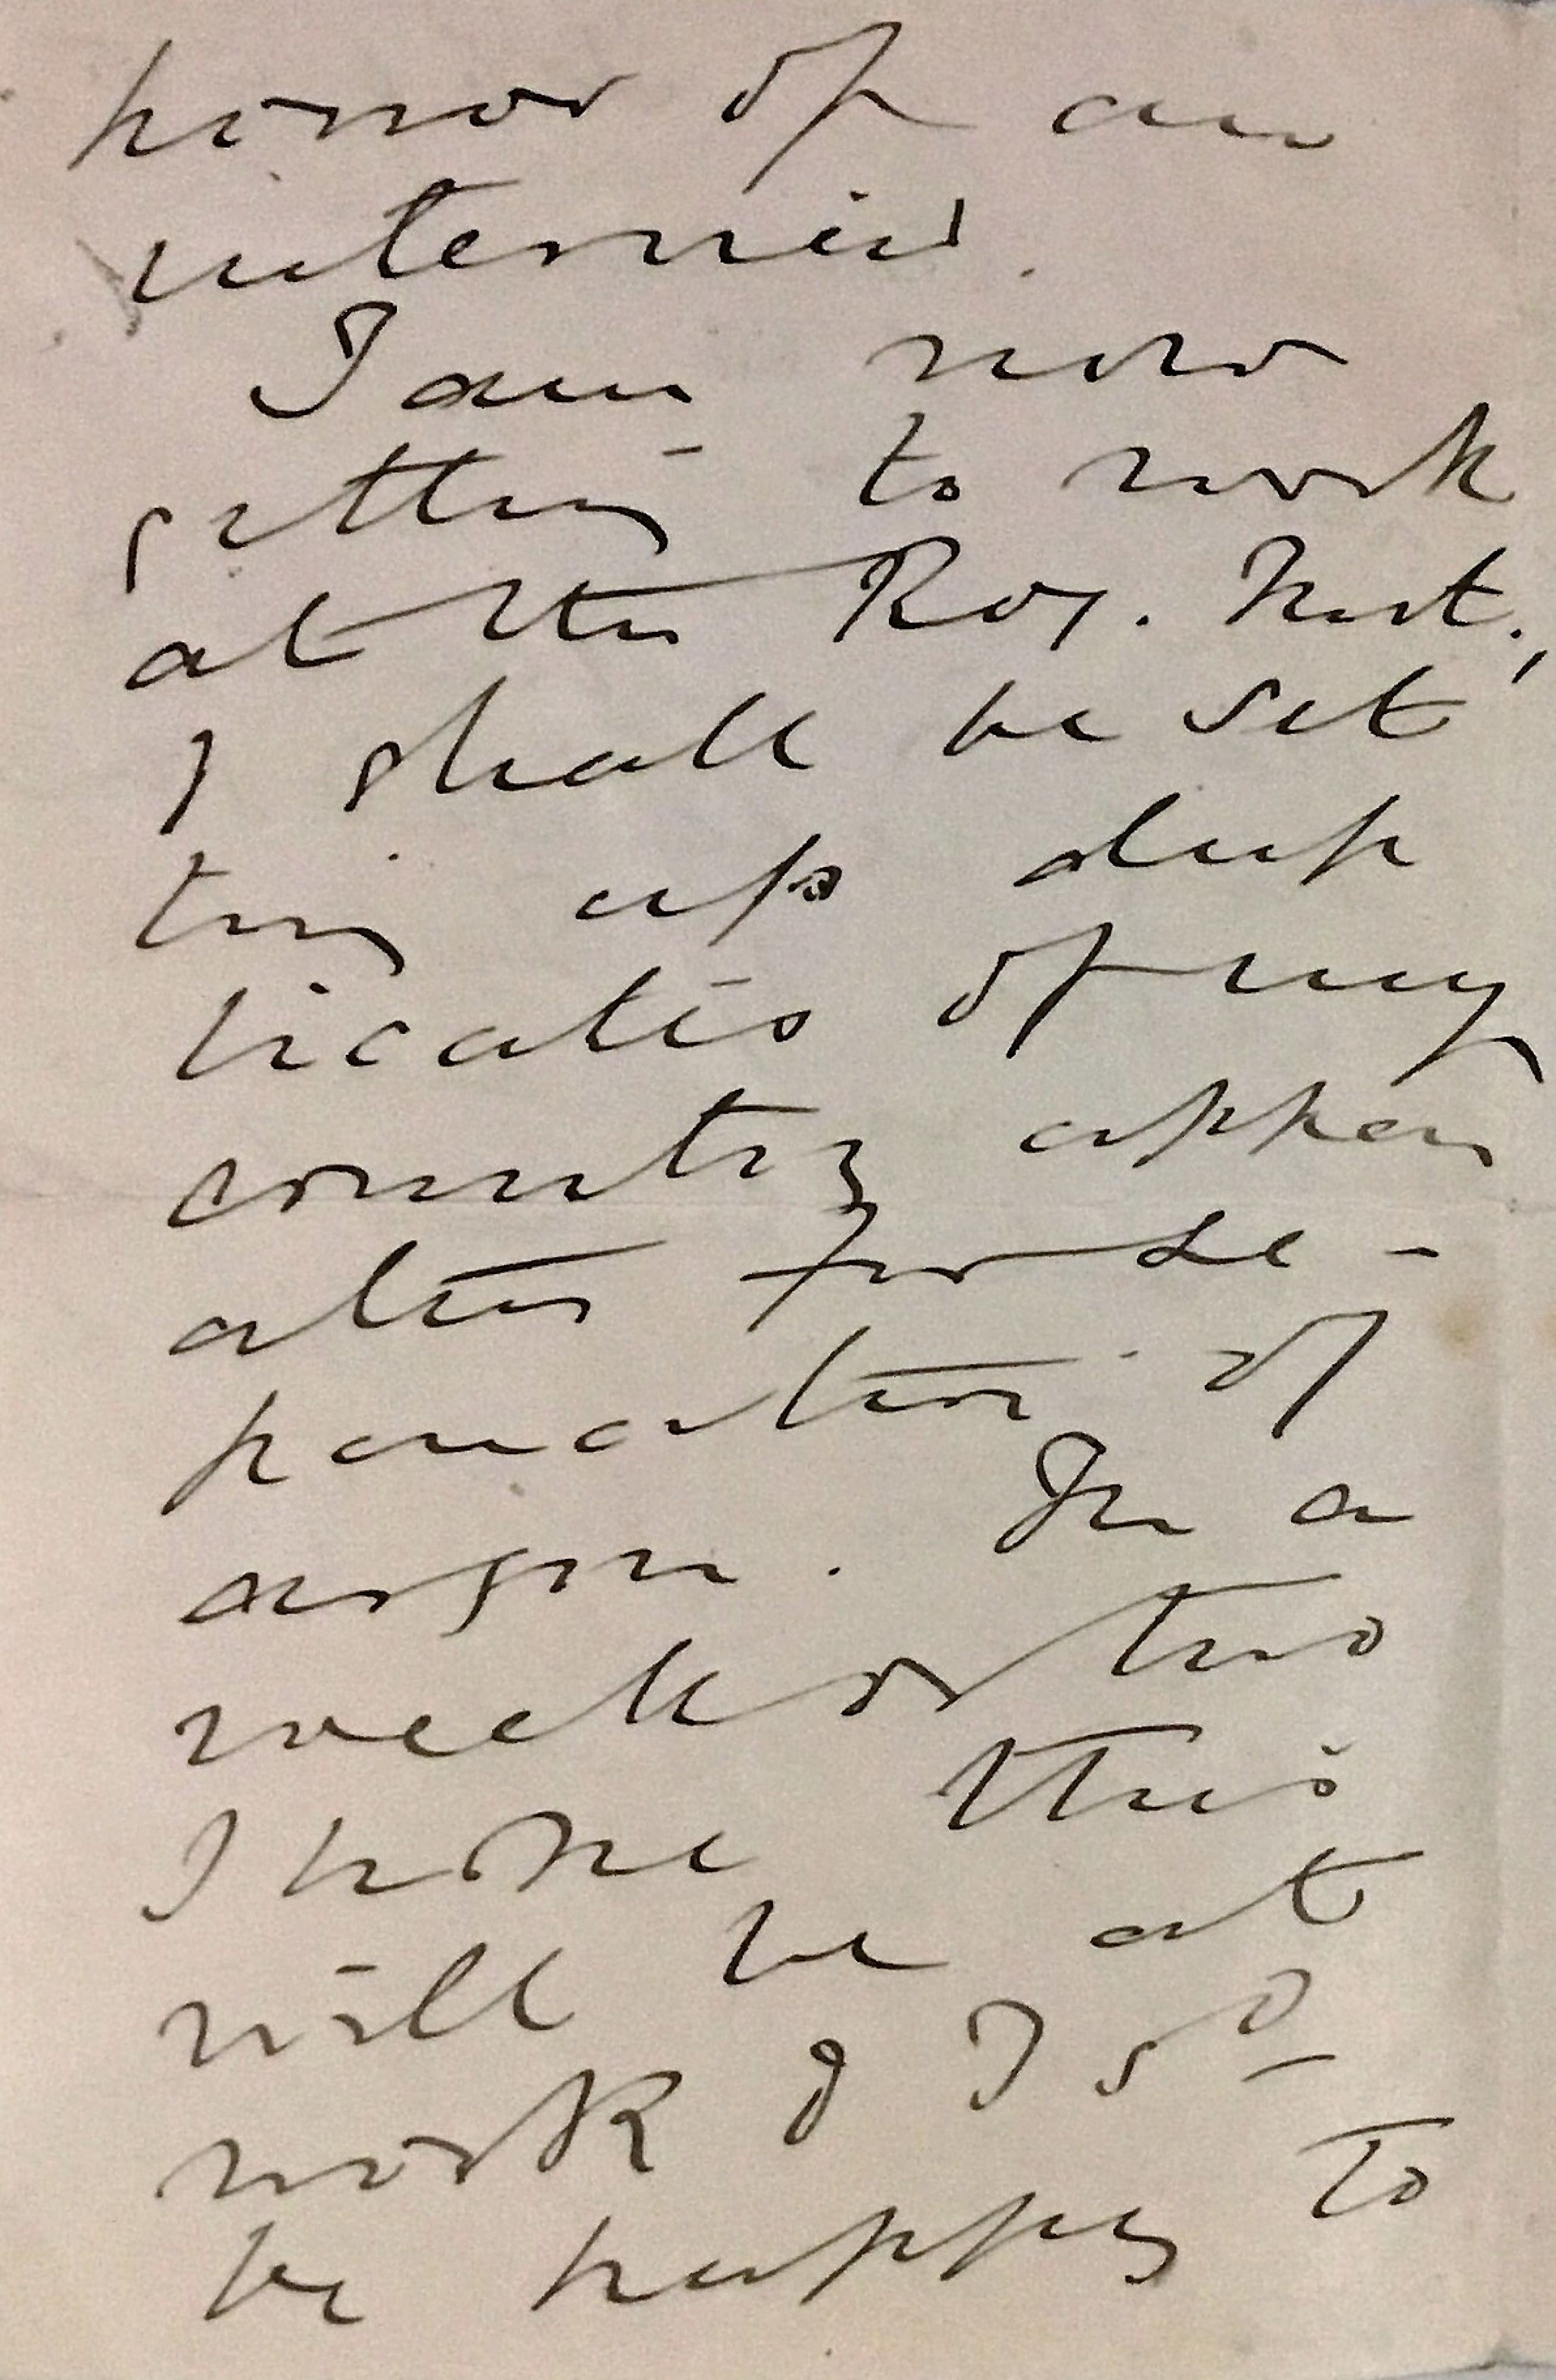 honor of an
interview.
I am now
getting to work
at the Roy. Inst.,
& shall be set
ting up dup
licates of my
country appar
atus for se-
paration of
argon. In a
week or two
I hope this
will be at
work & I sd
be happy to